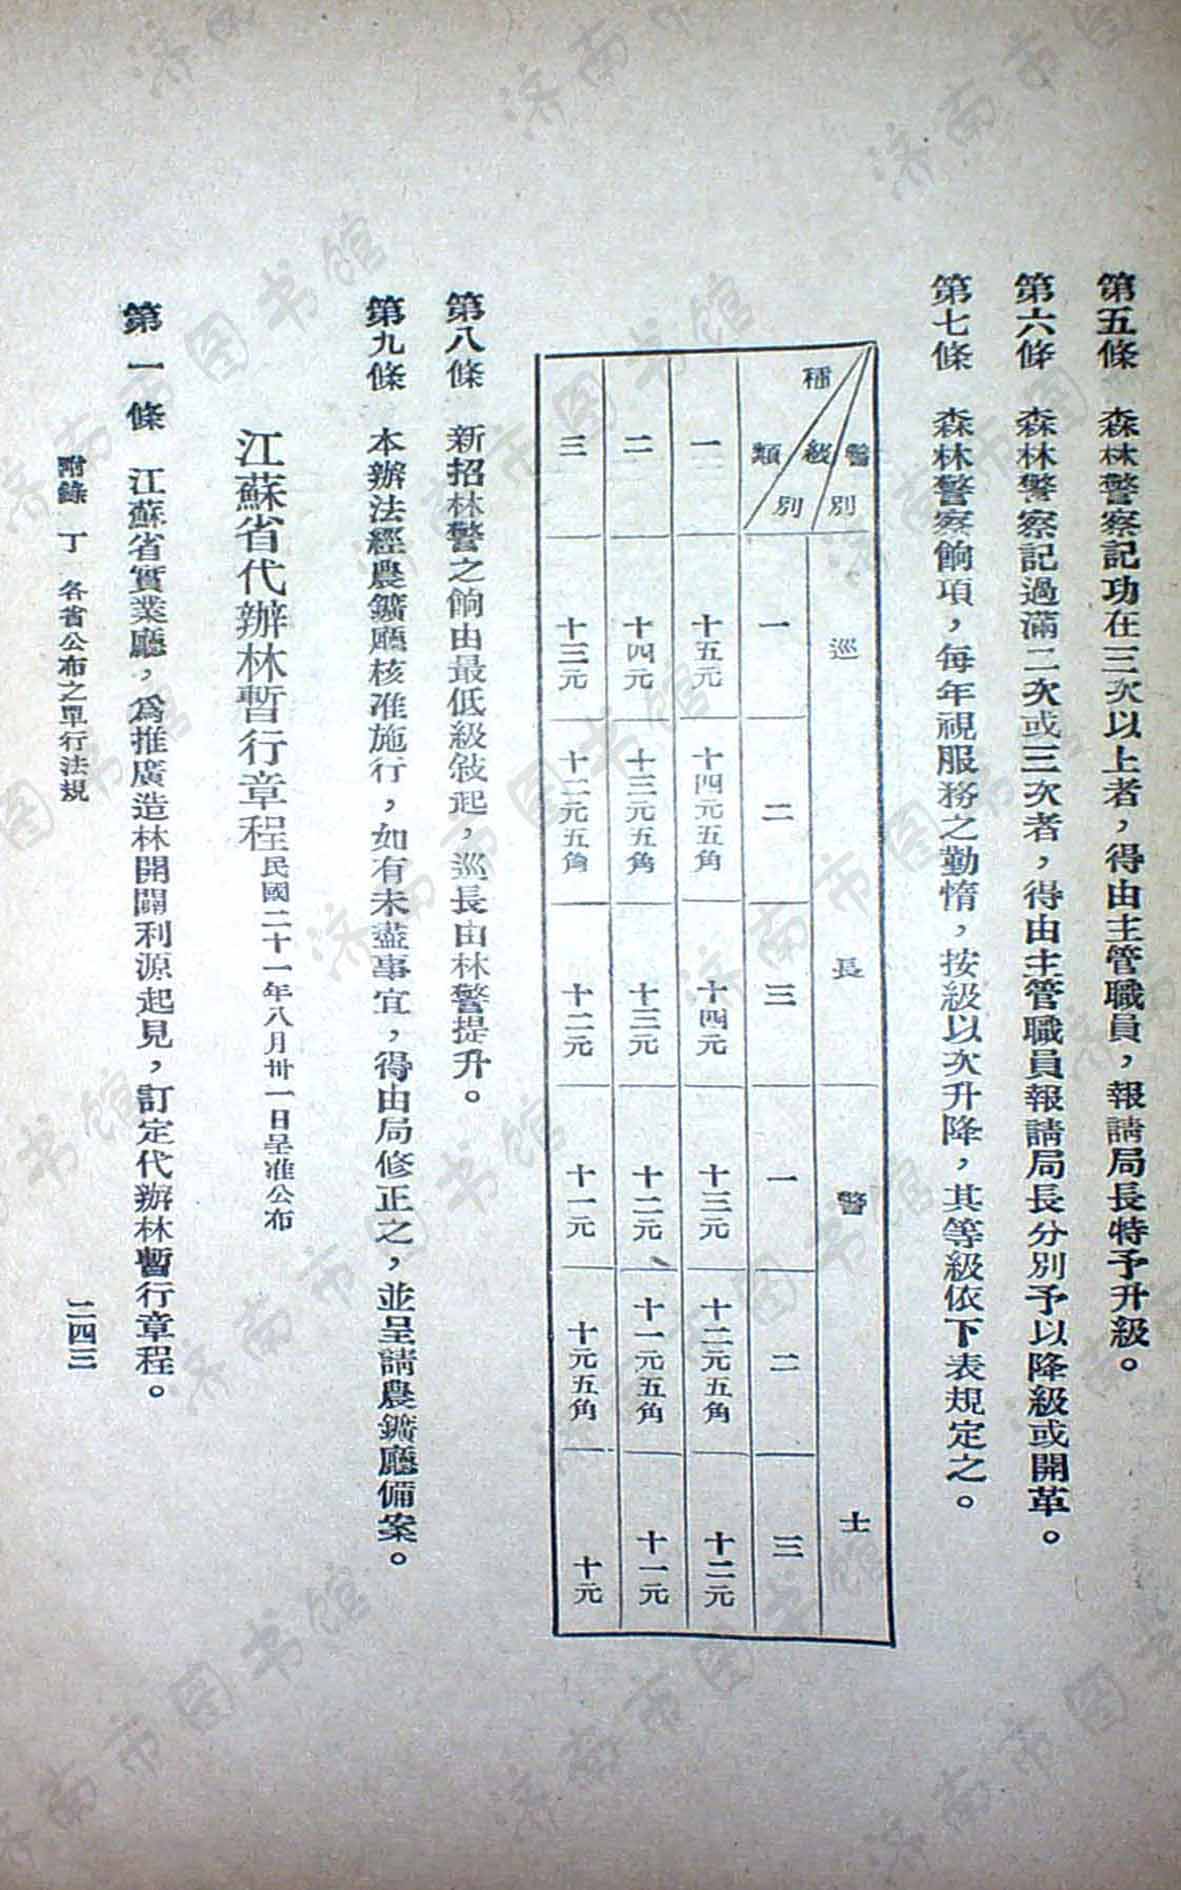 第五條　森林警察記功在三次以上者，得由主管職員，報請局長特予升級。
第六條　森林警察記過滿二次或三次者，得由主管職員報請局長分別予以降級或開革。
第七條　森林警察餉項，每年視服務之勤惰，按級以次升降，其等級依下表規定之。
警別　巡長　警士
級別　一　二　三　一　二　三
種類
一　十五元　十四元五角　十四元　十三元　十二元五角　十二元
二　十四元　十三元五角　十三元　十二元　十一元五角　十一元
三　十三元　十二元五角　十二元　十一元　十元五角　十元
第八條　新招林警之餉由最低級敍起，巡長由林警提升。
第九條　本辦法經農鑛廳核准施行，如有未盡事宜，得由局修正之，並呈請農鑛廳備案。
江蘇省代辦林暫行章程 民國二十一年八月卅一日呈准公布
第一條　江蘇省實業廳，爲推廣造林開闢利源起見，訂定代辦林暫行章程。
附錄　丁　各省公布之單行法規　二四三
济南市图书馆